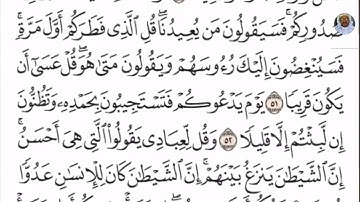 صُدُورِكُمْ ۚ فَسَيَقُولُونَ مَن يُعِيدُنَا ۖ قُلِ ٱلَّذِى فَطَرَكُمْ أَوَّلَ مَرَّةٍ ۚ
فَسَيُنْغِضُونَ إِلَيْكَ رُءُوسَهُمْ وَيَقُولُونَ مَتَىٰ هُوَ ۖ قُلْ عَسَىٰٓ أَن
يَكُونَ قَرِيبًا ٥١ يَوْمَ يَدْعُوكُمْ فَتَسْتَجِيبُونَ بِحَمْدِهِۦ وَتَظُنُّونَ
إِن لَّبِثْتُمْ إِلَّا قَلِيلًا ٥٢ وَقُل لِّعِبَادِى يَقُولُوا۟ ٱلَّتِى هِىَ أَحْسَنُ ۚ
إِنَّ ٱلشَّيْطَٰنَ يَنزَغُ بَيْنَهُمْ ۚ إِنَّ ٱلشَّيْطَٰنَ كَانَ لِلْإِنسَٰنِ عَدُوًّا